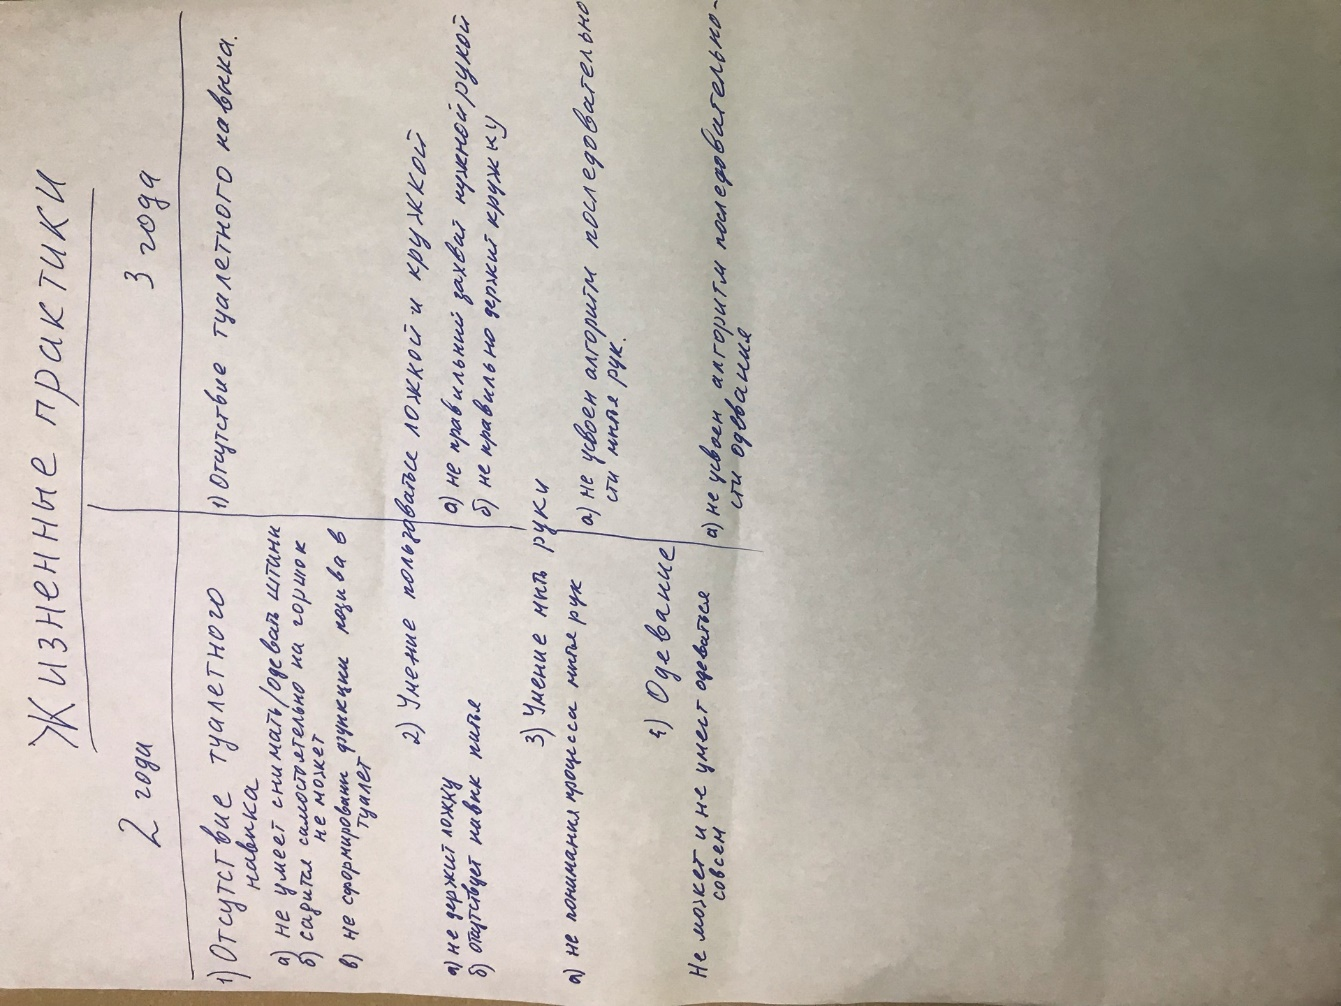 Жизненные практики
2 года
3 года
1) Отсутствие туалетного
навыка
а) не умеет снимать/одевать штаны
б) садится самостоятельно на горшок
не может
в) не сформированы функции позыва в
туалет
1) Отсутствие туалетного навыка.
2) Умение пользоваться ложкой и кружкой
а) не держит ложку
б) отсутствует навык питья
а) не правильный захват нужной рукой
б) не правильно держит кружку
3) Умение мыть руки
а) не понимания процесса мытья рук
а) не усвоен алгоритм последовательно
сти мытья рук.
4) Одевание
Не может и не умеет одеваться
совсем
а) не усвоен алгоритм последовательно-
сти одевания